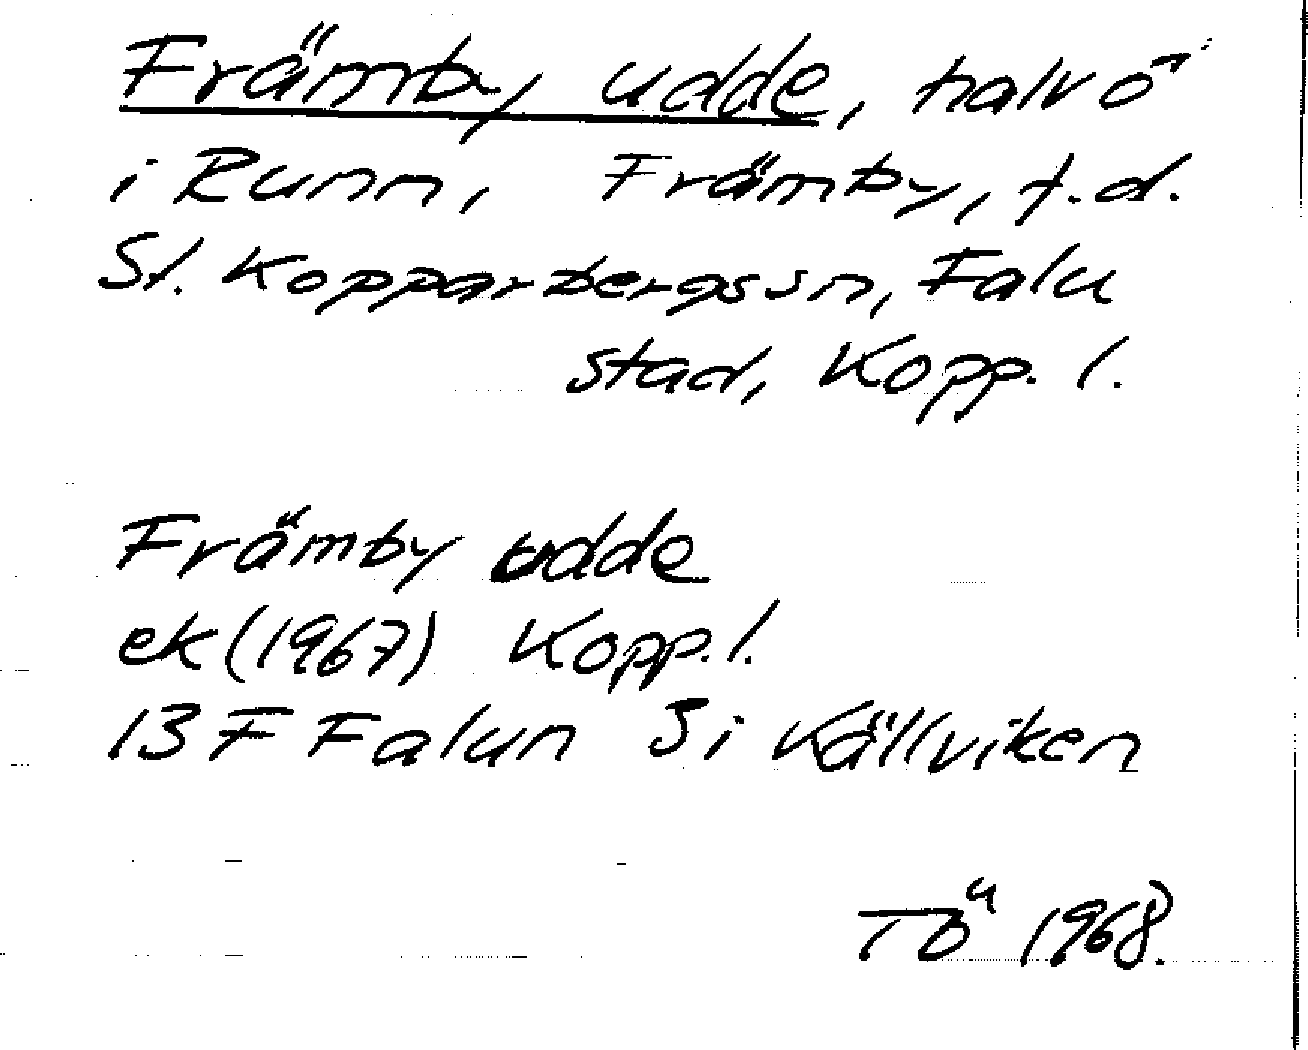 Främby udde, halvö
i Runn, Främby, f.d.
St. Kopparbergs sn, Falu
stad, Kopp. l.
Främby udde
ek (1967) Kopp. l.
13 F Falun Si Källviken
TB 1968.